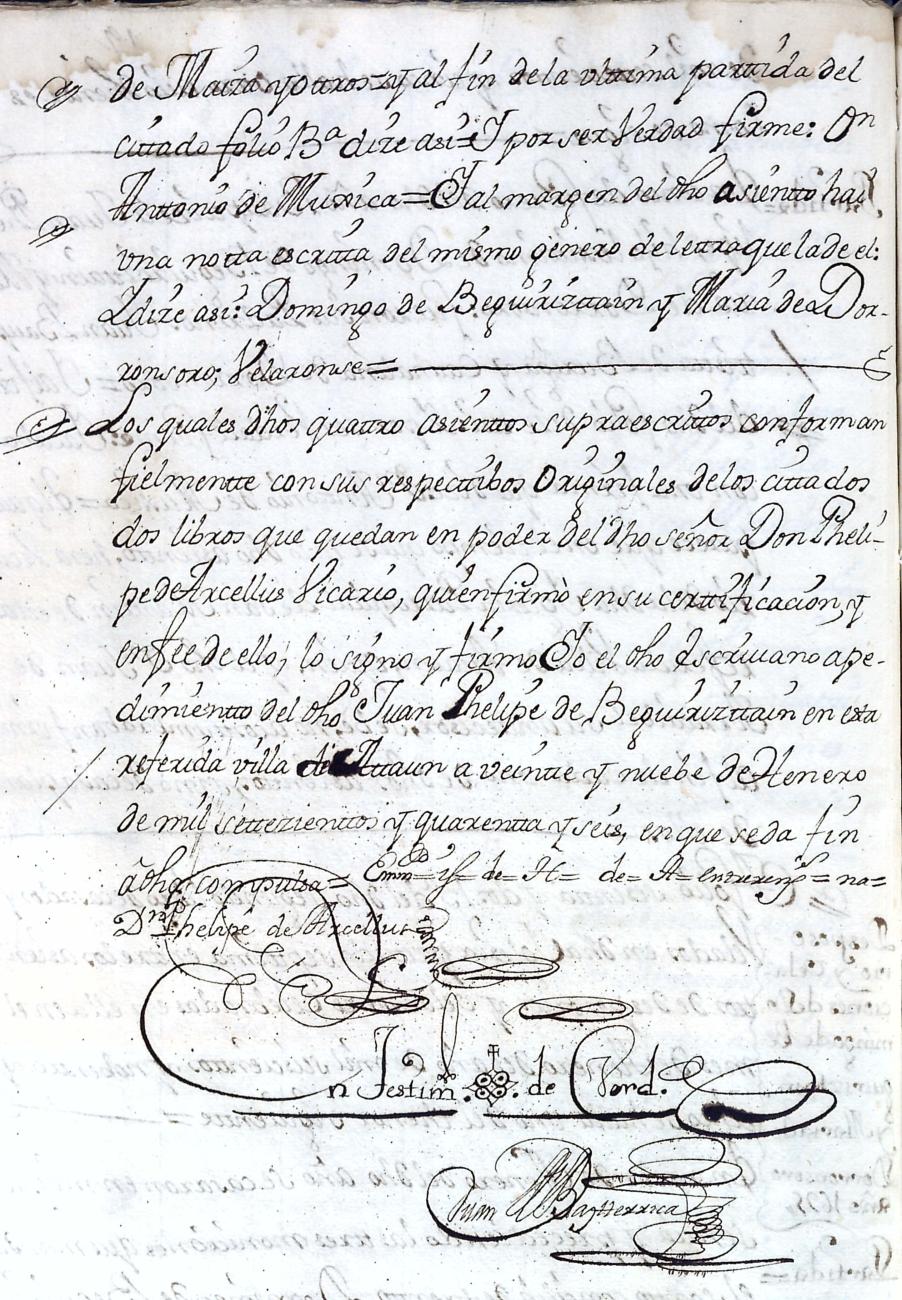 de Maria y ottros= y al fin de la vlttima parttida del
cittado folio B.ª dize asi= I por ser Verdad firme: Dn
Anttonio de Muxica= I al margen del dho asientto hai
vna notta escritta del mismo genero de lettra que la de el:
I dize asi: Domingo de Beguirizttain y Maria de Dor-
ronsoro; Velaronse=
Los quales dhos quattro asienttos supraescrittos conforman
fielmentte con sus respecttibos Originales de los cittados
dos libros que quedan en poder del dho señor Don Pheli-
pe de Arcellus Vicario, quien firmò en su certtificacion, y
en fee de ello, lo signo y firmo Io el dho Escriuano a pe-
dimientto del dho Juan Phelipe de Beguirizttain en esta
referida villa de Attaun a veintte y nuebe de Henero
de mil settezienttos y quarentta y seis, en que se da fin
â dha compulsa= Emmdo= = de= H= de= A= = na=
Dn Phelipe de Arcellus
En Testim.º de Verd.
Juan Bap Herrica